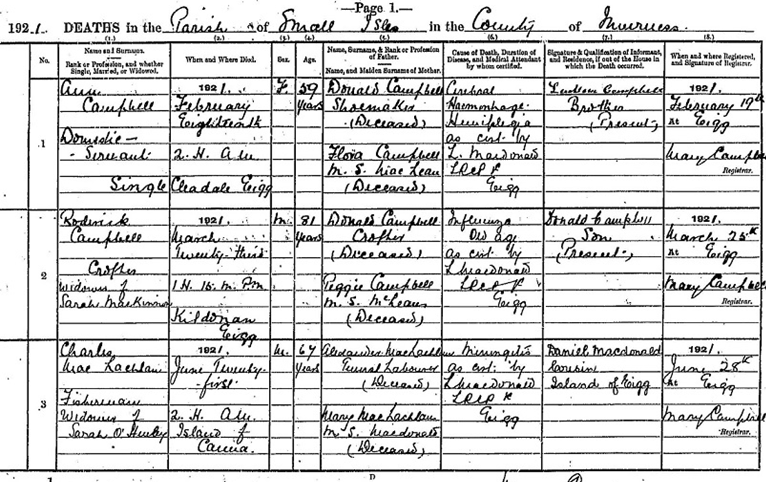 —Page 1.—
1921. DEATHS in the Parish of Small Isles in the County of Inverness
(1.) (2.) (3.) (4.) (5.) (6.) (7.) (8.)
No. Name and Surname. When and Where Died. Sex. Age. Name, Surname, & Rank or Profession of Father. Cause of Death, Duration of Disease, and Medical Attendant by whom certified. Signature & Qualification of Informant, and Residence, if out of the House in which the Death occurred. When and where Registered, and Signature of Registrar.
Rank or Profession, and whether Single, Married, or Widowed. Name, and Maiden Surname of Mother.
1
Ann
Campbell
Domestic
Servant
Single
1921.
February
Eighteenth
2. H. A.M.
Cleadale Eigg
F
59
years
Donald Campbell
Shoemaker
(Deceased)
Flora Campbell
M. S. MacLean
(Deceased)
Cerebral
Haemorrhage
Hemiplegia
as cert. by
L. Macdonald
LRCP
Eigg
Campbell
Brother
(Present)
1921.
February 19th
At Eigg
Mary Campbell
Registrar.
2
Roderick
Campbell
Crofter
Widower of
Sarah MacKinnon
1921.
March
Twenty third
1 H. 15. m. P.m
Kildonan
Eigg
M.
81
years
Donald Campbell
Crofter
(Deceased)
Peggie Campbell
M. S. McLean
(Deceased)
Influenza
Old age
as cert. by
L Macdonald
LRCP
Eigg
Donald Campbell
Son
(Present)
1921.
March 25th
At Eigg
Mary Campbell
Registrar.
3
Charles
MacLachlan
Fisherman
Widower of
Sarah O'Henley
1921.
June Twenty-
first
2. H. A.M.
Island of
Canna.
M.
67
years
Alexander MacLachlan
Rural Labourer
(Deceased)
Mary MacLachlan
M. S. Macdonald
(Deceased)
Meningitis
as cert. by
L Macdonald
LRCP
Eigg
Daniel Macdonald
Cousin
Island of Eigg
1921.
June 28th
At Eigg
Mary Campbell
Registrar.